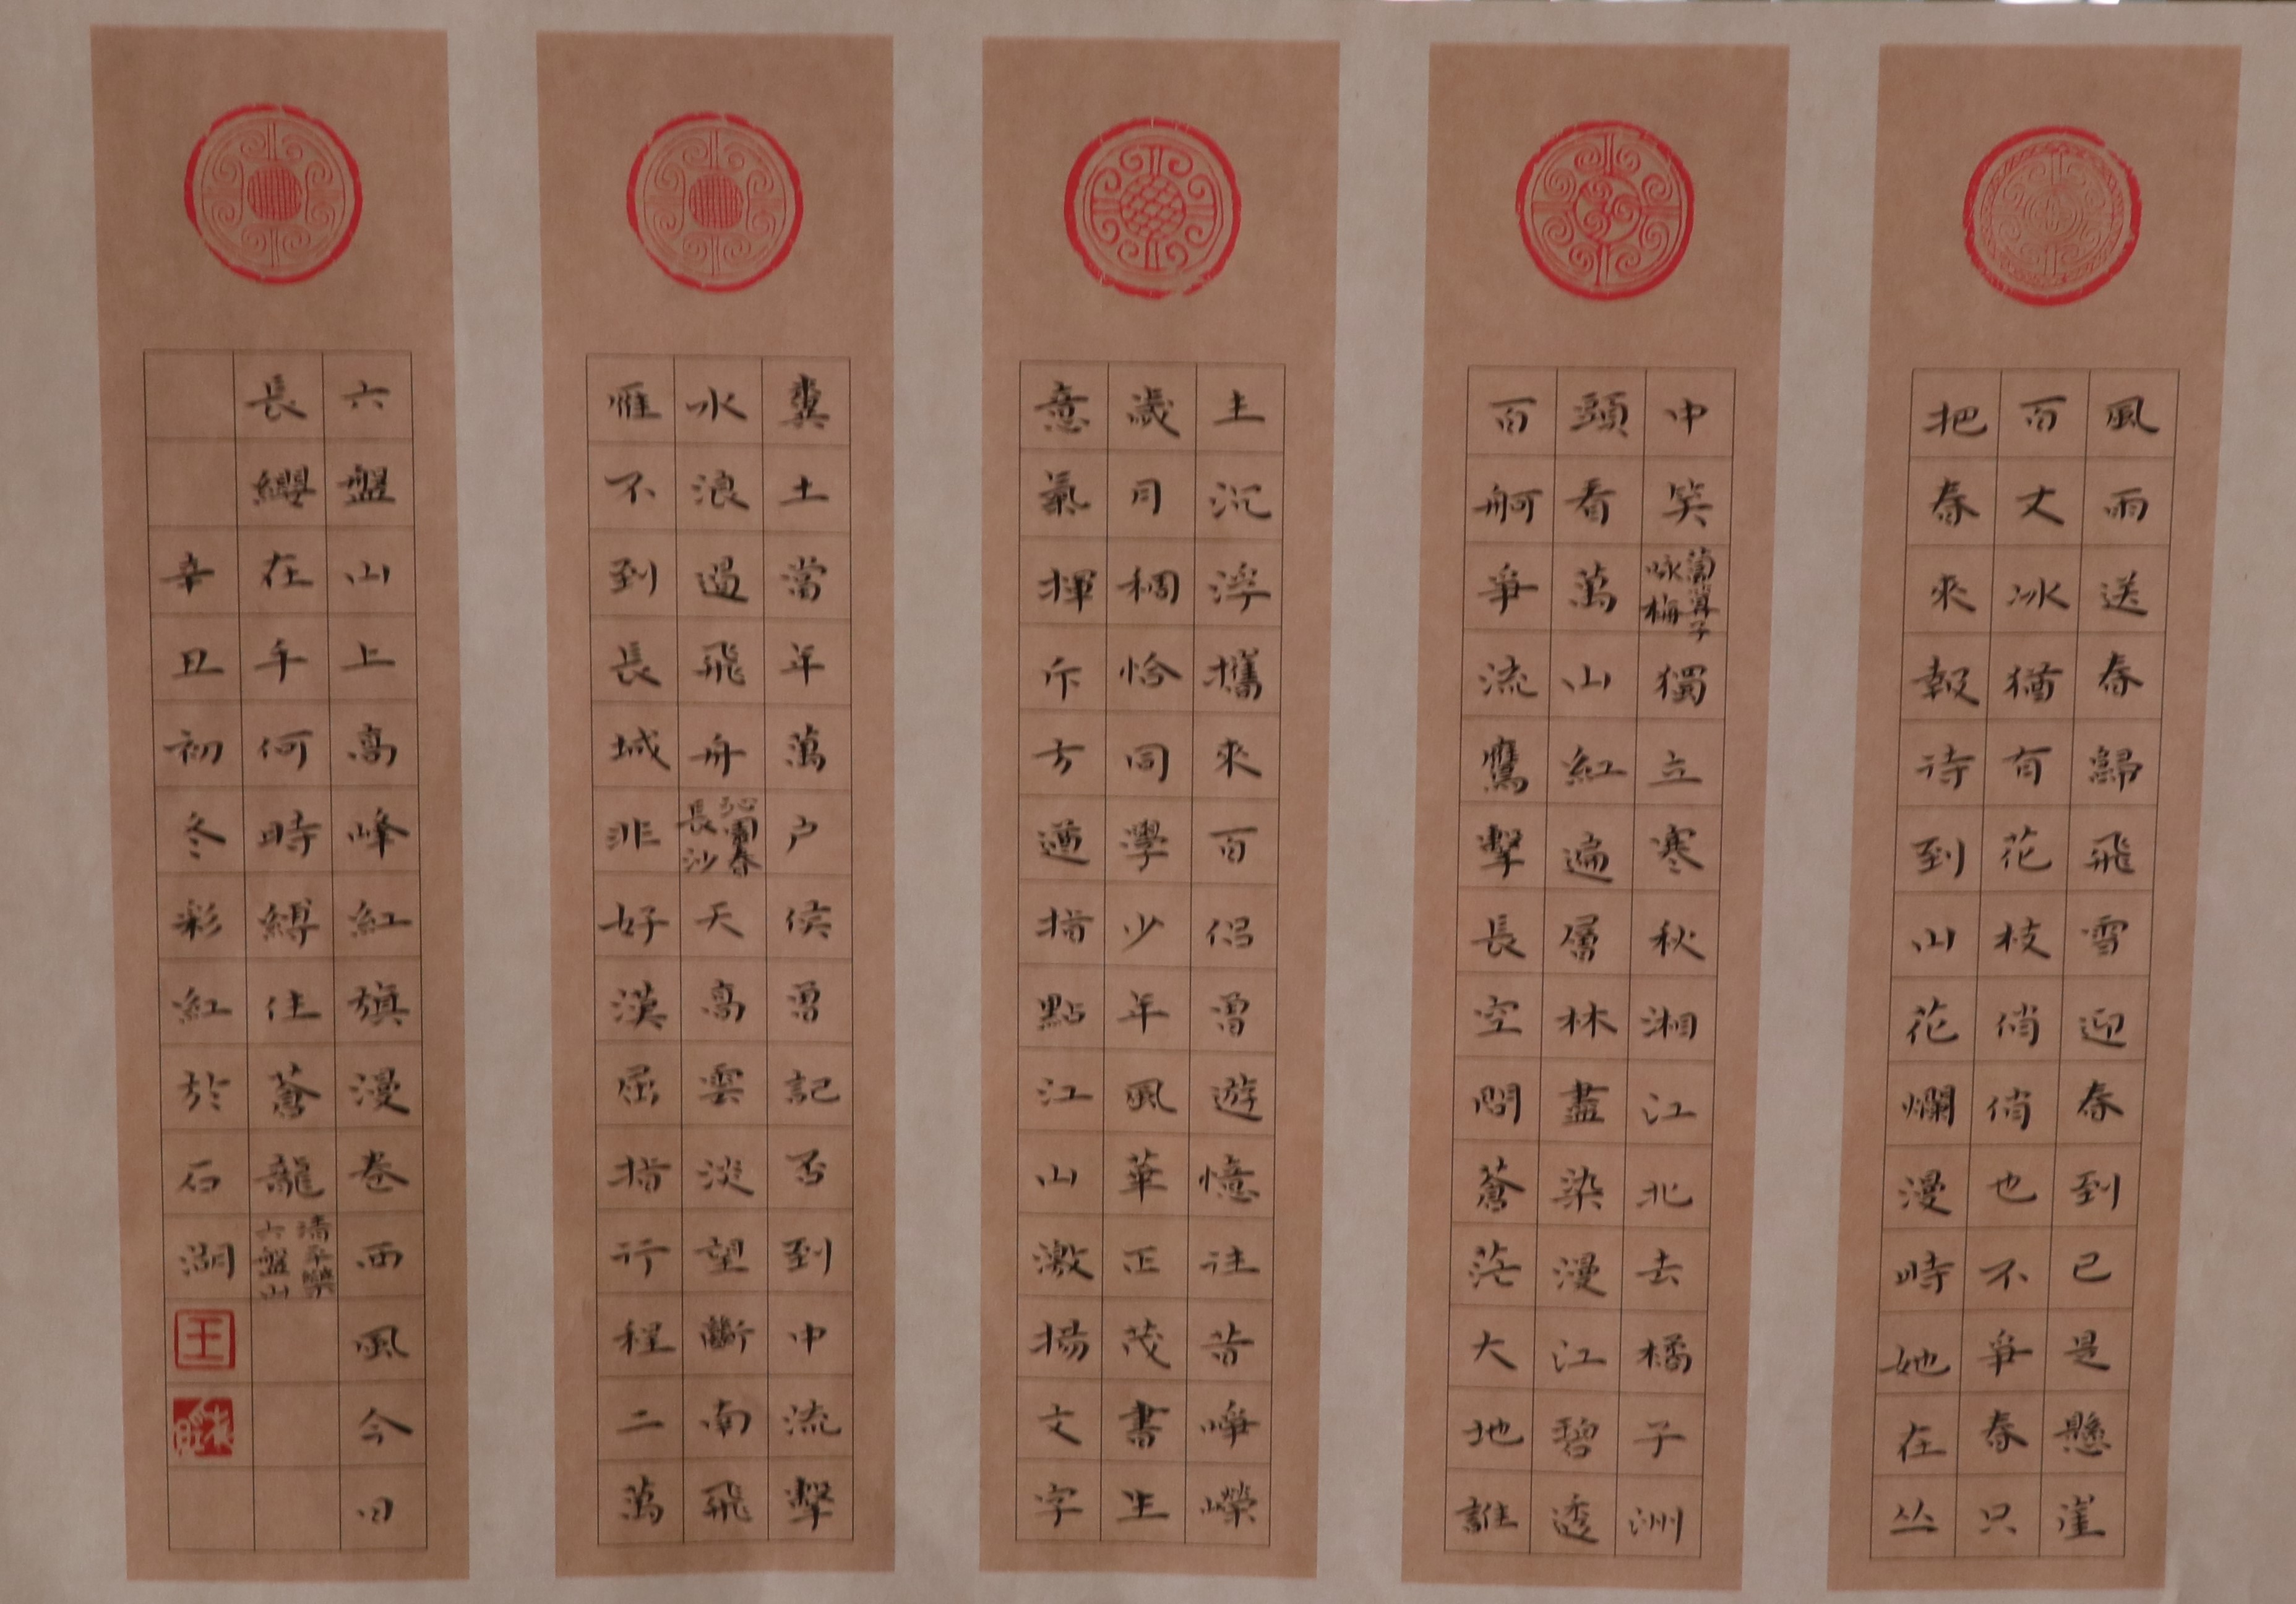 風雨送春歸飛雪迎春到已是懸崖
百丈冰猶有花枝俏俏也不爭春只
把春來報待到山花爛漫時她在丛
中笑蔔算子咏梅獨立寒秋湘江北去橘子洲
頭看萬山紅遍層林盡染漫江碧透
百舸爭流鷹擊長空問蒼茫大地誰
主沉浮攜來百侣曾遊憶往昔崢嶸
歲月稠恰同學少年風華正茂書生
意氣揮斥方遒指點江山激揚文字
糞土當年萬户侯曾記否到中流擊
水浪遏飛舟沁園春長沙天高雲淡望斷南飛
雁不到長城非好漢屈指行程二萬
六盤山上高峰紅旗漫卷西風今日
長纓在手何時縛住蒼龍清平樂六盤山
辛丑初冬彩紅於石湖
王